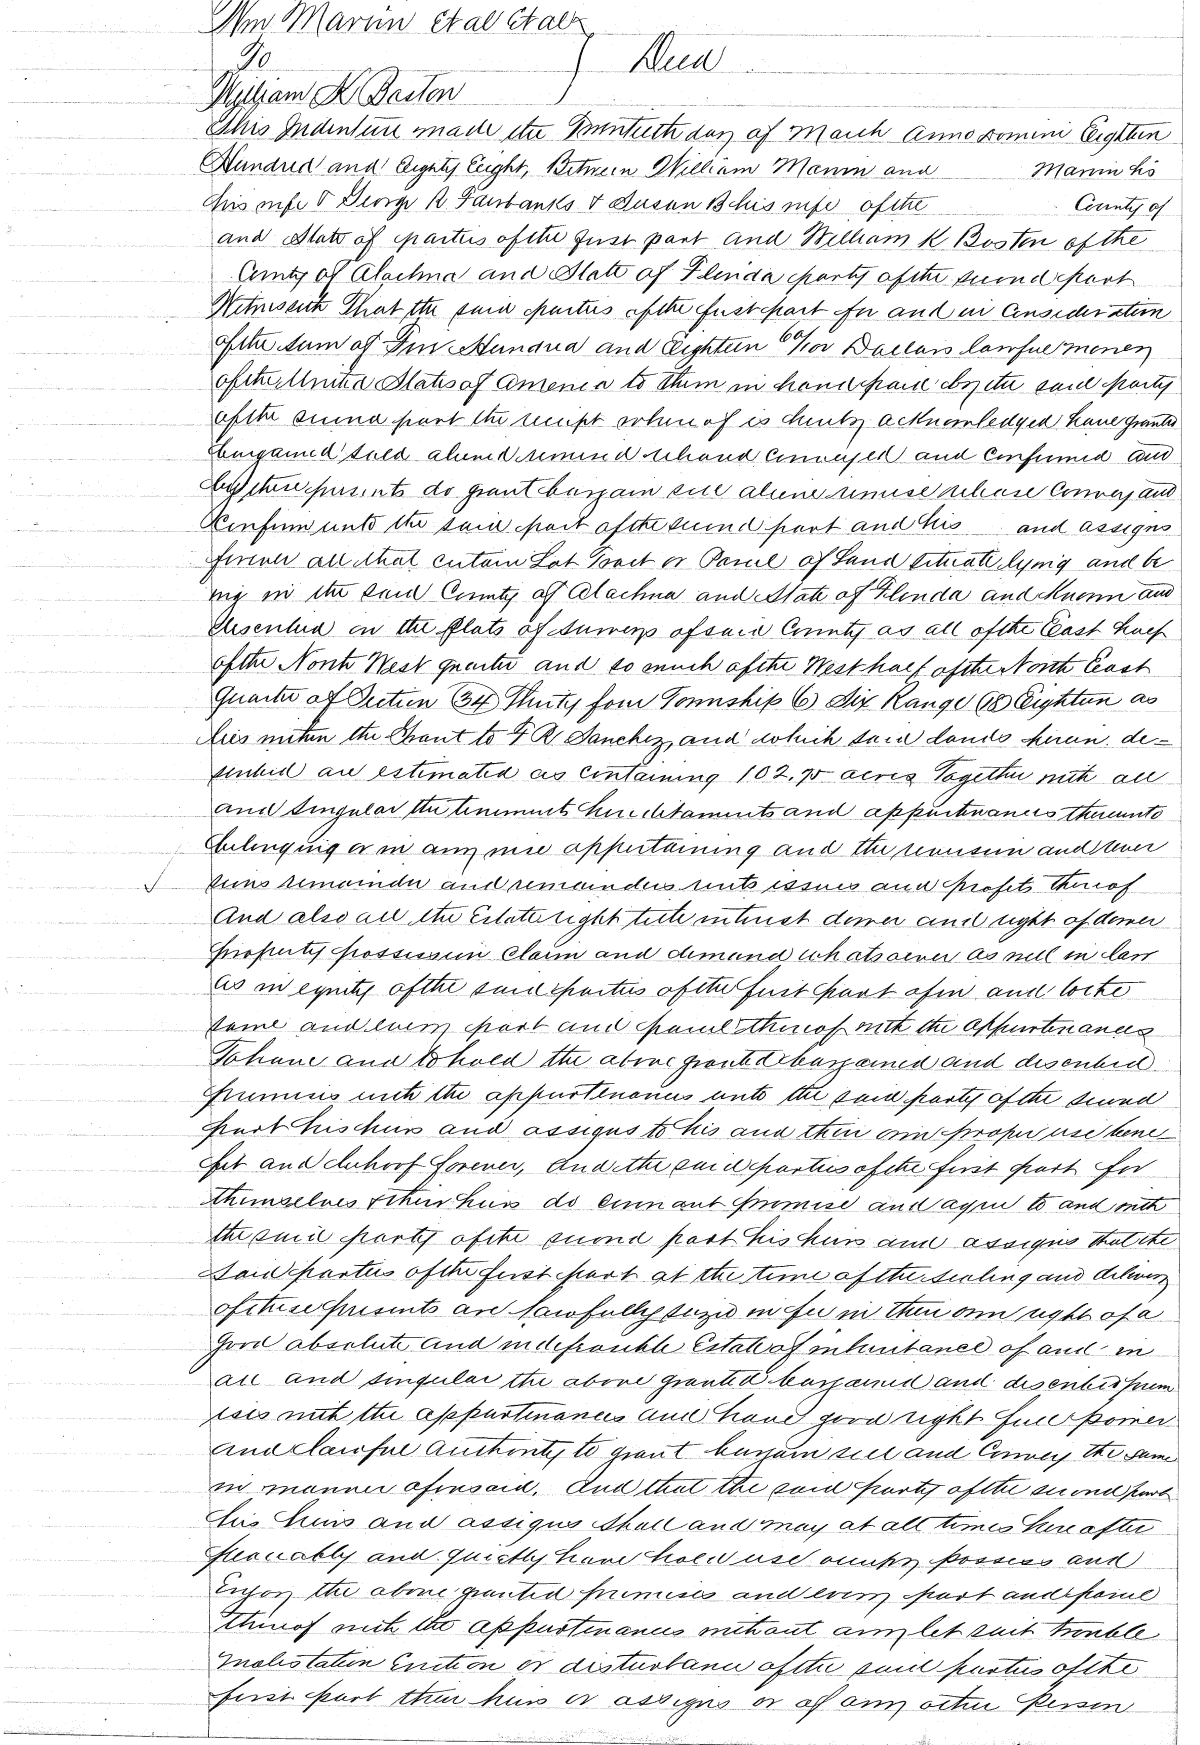 Wm Martin et al et alx
To } Deed
William K Boston
This Indenture made the Twentieth day of March Anno Domini Eighteen
Hundred and Eighty Eight, Between William Martin and Martin his
his wife & George R Fairbanks & Susan B his wife of the County of
and State of parties of the first part and William K Boston of the
County of Alachua and State of Florida party of the second part
Witnesseth That the said parties of the first part for and in Consideration
of the sum of Hundred and Eighteen 60/100 Dollars lawful money
of the United States of America to them in hand paid by the said party
of the second part the receipt whereof is hereby acknowledged have granted
bargained sold aliened remised released Conveyed and Confirmed and
by these presents do grant bargain sell aliene remise release Convey and
Confirm unto the said part of the second part and his and assigns
forever all that certain Lot Tract or Parcel of Land situate lying and be
ing in the said County of Alachua and State of Florida and Known and
described on the plats of surveys of said County as all of the East half
of the North West quarter and so much of the West half of the North East
Quarter of Section (34) Thirty four Township (6) Six Range (18) Eighteen as
lies within the Grant to F R Sanchez, and which said lands herein de=
scribed are estimated as containing 102.70 acres Together with all
and singular the tenements hereditaments and appurtenances thereunto
belonging or in any wise appertaining and the reversion and rever
sions remainder and remainders rents issues and profits thereof
And also all the Estate right title interest dower and right of dower
property possession Claim and demand whatsoever as well in law
as in equity of the said parties of the first part of in and to the
same and every part and parcel thereof with the appurtenances
To have and to hold the above granted bargained and described
premises with the appurtenances unto the said party of the second
part his heirs and assigns to his and their own proper use bene
fit and behoof forever, And the said parties of the first part for
themselves & their heirs do covenant promise and agree to and with
the said party of the second part his heirs and assigns that the
said parties of the first part at the time of the sealing and delivery
of these presents are lawfully seized in fee in their own right of a
good absolute and indefeasible Estate of inheritance of and in
all and singular the above granted bargained and described prem
ises with the appurtenances and have good right full power
and lawful Authority to grant bargain sell and Convey the same
in manner aforesaid. And that the said party of the second part
his heirs and assigns shall and may at all times hereafter
peaceably and quietly have hold use occupy possess and
Enjoy the above granted premises and every part and parcel
thereof with the appurtenances without any let suit trouble
Molestation Eviction or disturbance of the said parties of the
first part their heirs or assigns or of any other Person